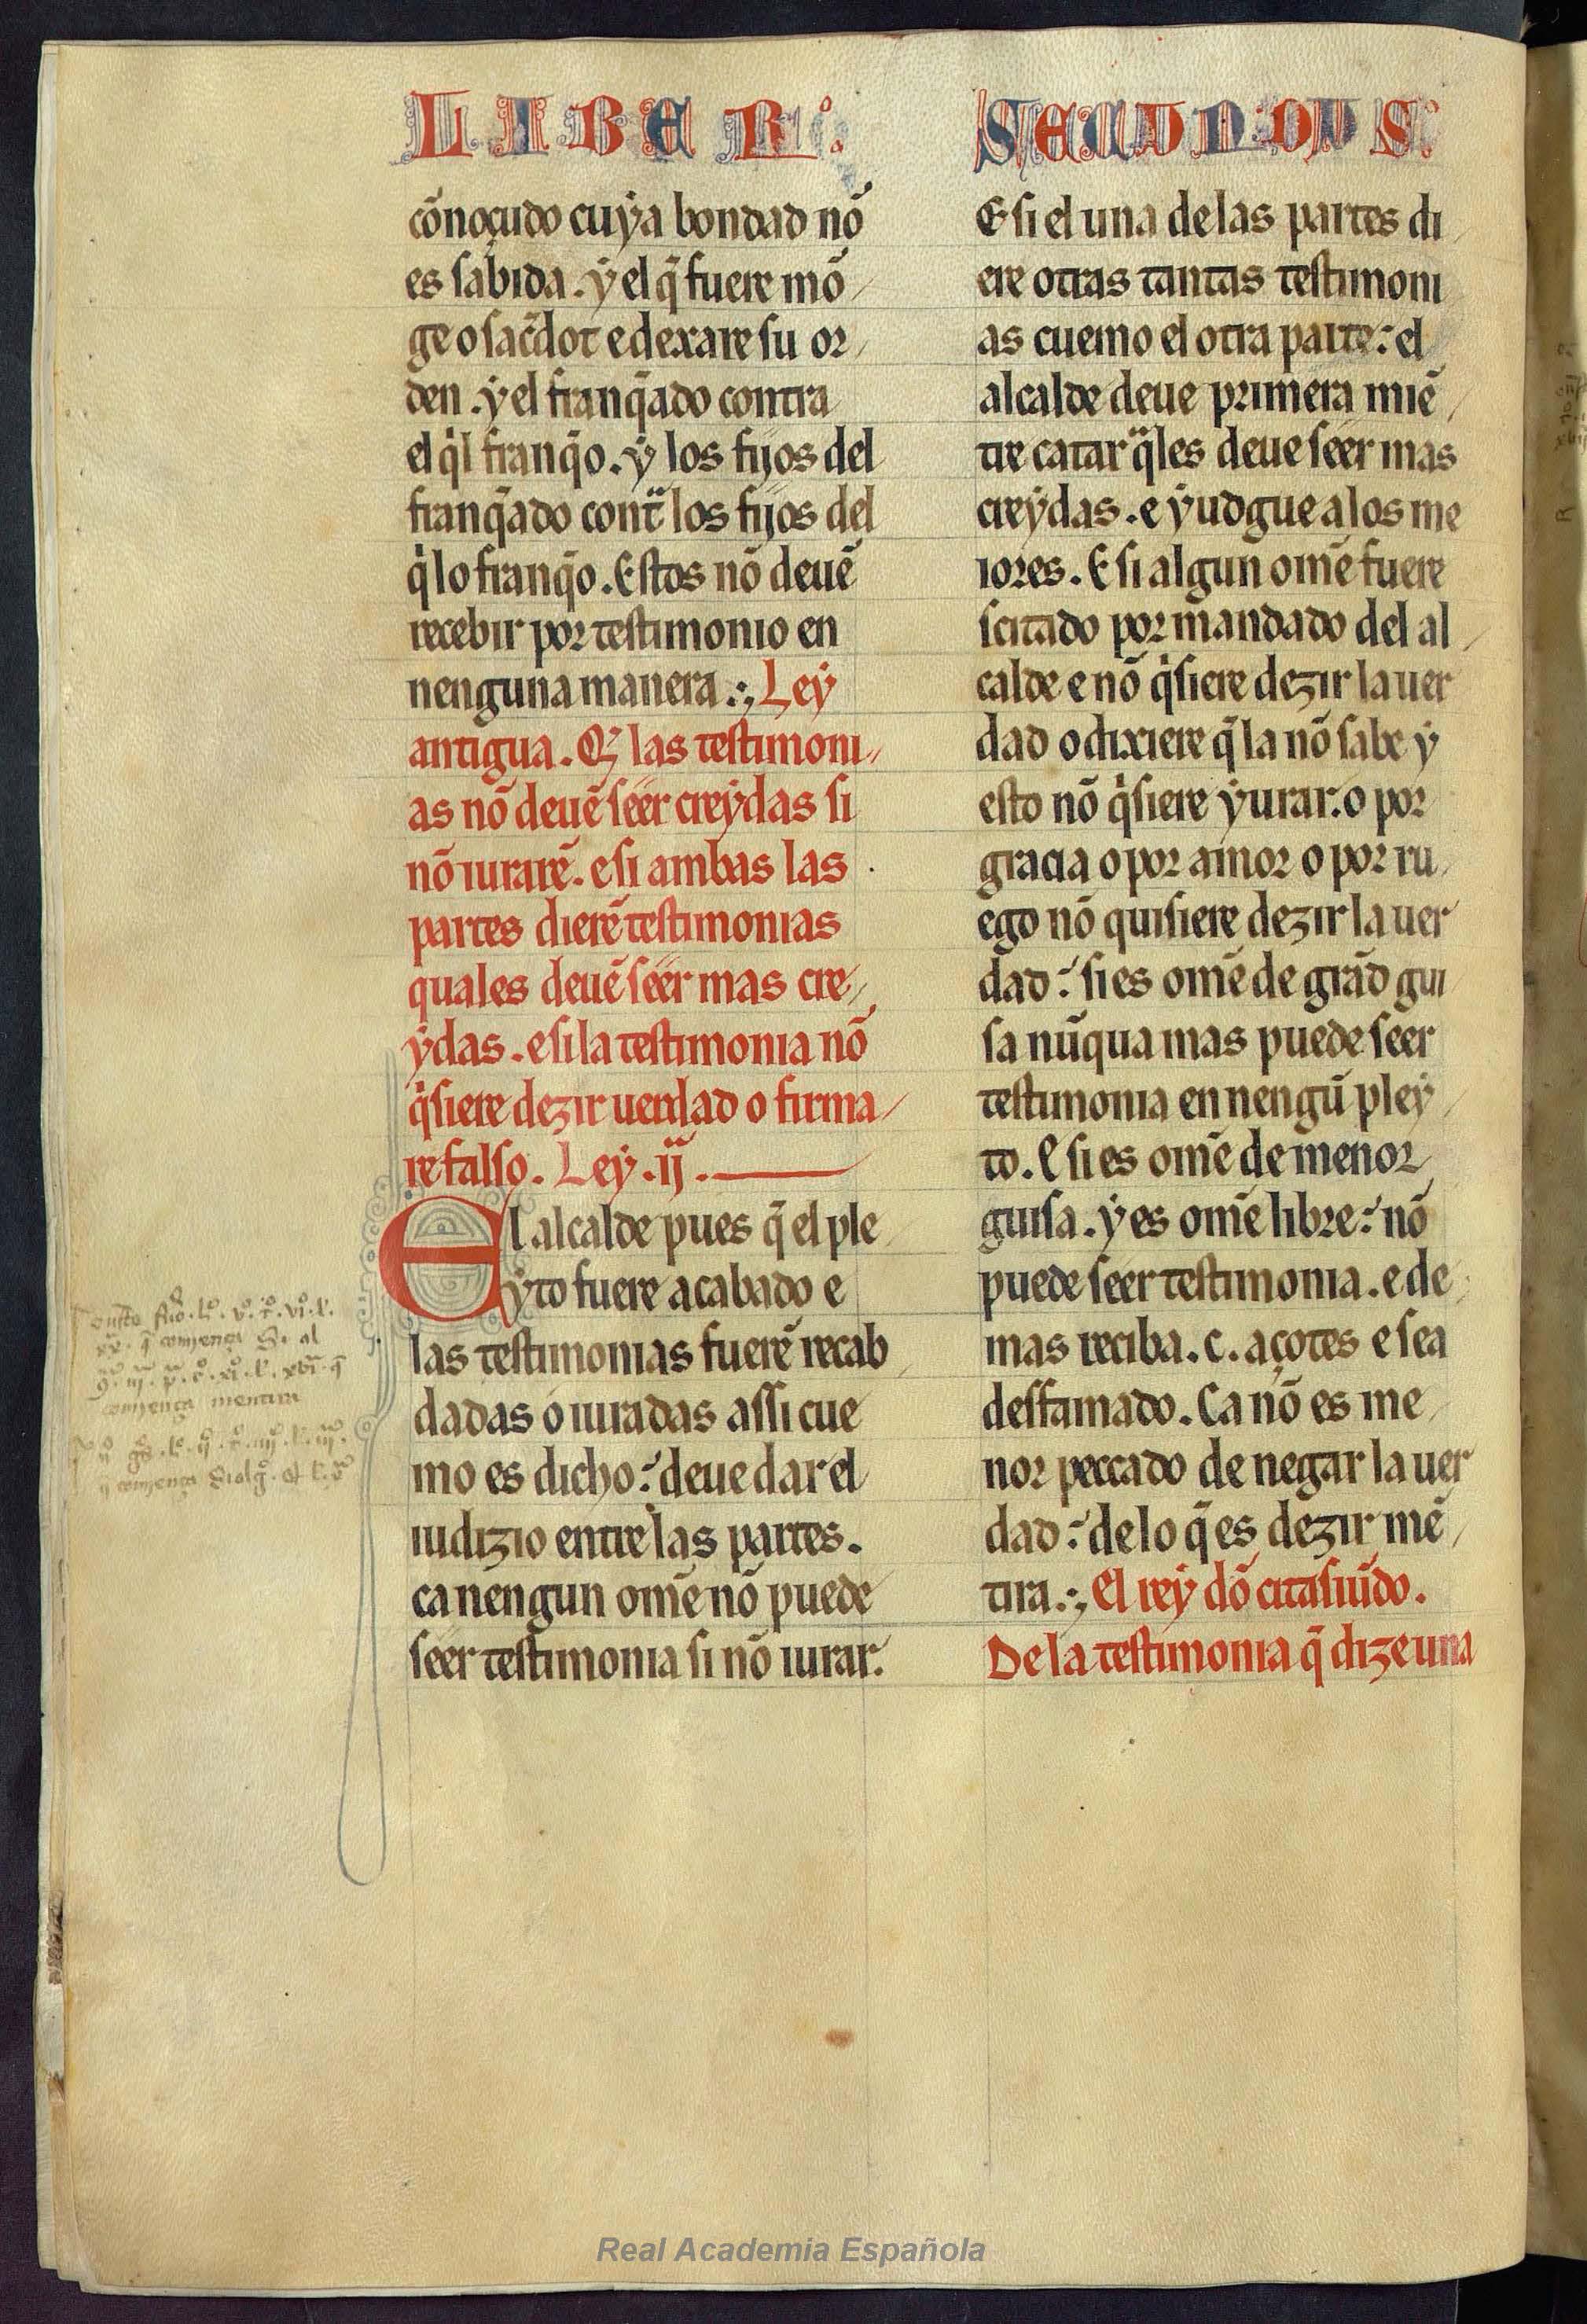 LIBER
cõnoçudo cuẏa bondad nõ
es sabida. ẏ el q̃ fuere mõ
ge o sac̃dot e dexare su or
den. ẏ el franq̃ado contra
el q̇l franq̃o. ẏ los fijos del
franq̃ado cont̃ los fijos del
q̇ lo franq̃o. Estos nõ deuẽ
recebir por testimonio en
nenguna manera.:, Leẏ
antigua. Q̃ las testimoni
as nõ deuẽ seer creẏdas si
nõ iurarẽ. e si ambas las
partes dierẽ testimonias
quales deuẽ seer mas cre
ẏdas. e si la testimonia nõ
q̇siere dezir uerdad o firma
re falso. Leẏ. ij.
El alcalde pues q̃ el ple
ẏto fuere acabado e
las testimonias fuerẽ recab
dadas o iuradas assi cue
mo es dicho: deue dar el
iudizio entre las partes.
ca nengun om̃e nõ puede
seer testimonia si nõ iurar.
SECUNDUS
E si el una de las partes di
ere otras tantas testimoni
as cuemo el otra parte: el
alcalde deue primera miẽ
tre catar q̃les deue seer mas
creẏdas. e ẏudgue a los me
iores. E si algun om̃e fuere
scitado por mandado del al
calde e nõ q̇siere dezir la uer
dad o dixiere q̃ la nõ sabe ẏ
esto nõ q̇siere ẏurar. o por
gracia o por amor o por ru
ego nõ quisiere dezir la uer
dad: si es om̃e de grãd gui
sa nũqua mas puede seer
testimonia en nengũ pleẏ
to. E si es om̃e de menor
guisa. ẏ es om̃e libre: nõ
puede seer testimonia. e de
mas reciba. c. açotes e sea
desfamado. Ca nõ es me
nor peccado de negar la uer
dad: de lo q̃ es dezir mẽ
tira.:, El reẏ dõ citasiũdo.
De la testimonia q̃ dize una
comença mentira
Real Academia Española